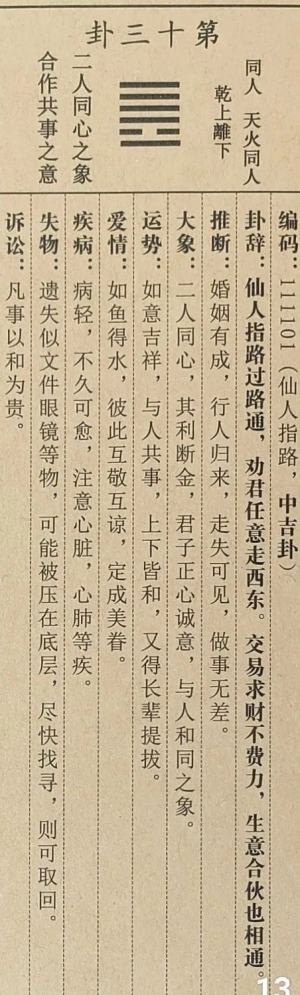 第十三卦
同人 天火同人
乾上離下
二人同心之象
合作共事之意
编码：111101（仙人指路，中吉卦）
卦辞：仙人指路过路通，劝君任意走西东。交易求财不费力，生意合伙也相通。
推断：婚姻有成，行人归来，走失可见，做事无差。
大象：二人同心，其利断金，君子正心诚意，与人和同之象。
运势：如意吉祥，与人共事，上下皆和，又得长辈提拔。
爱情：如鱼得水，彼此互敬互谅，定成美眷。
疾病：病轻，不久可愈，注意心脏，心肺等疾。
失物：遗失似文件眼镜等物，可能被压在底层，尽快找寻，则可取回。
诉讼：凡事以和为贵。
13